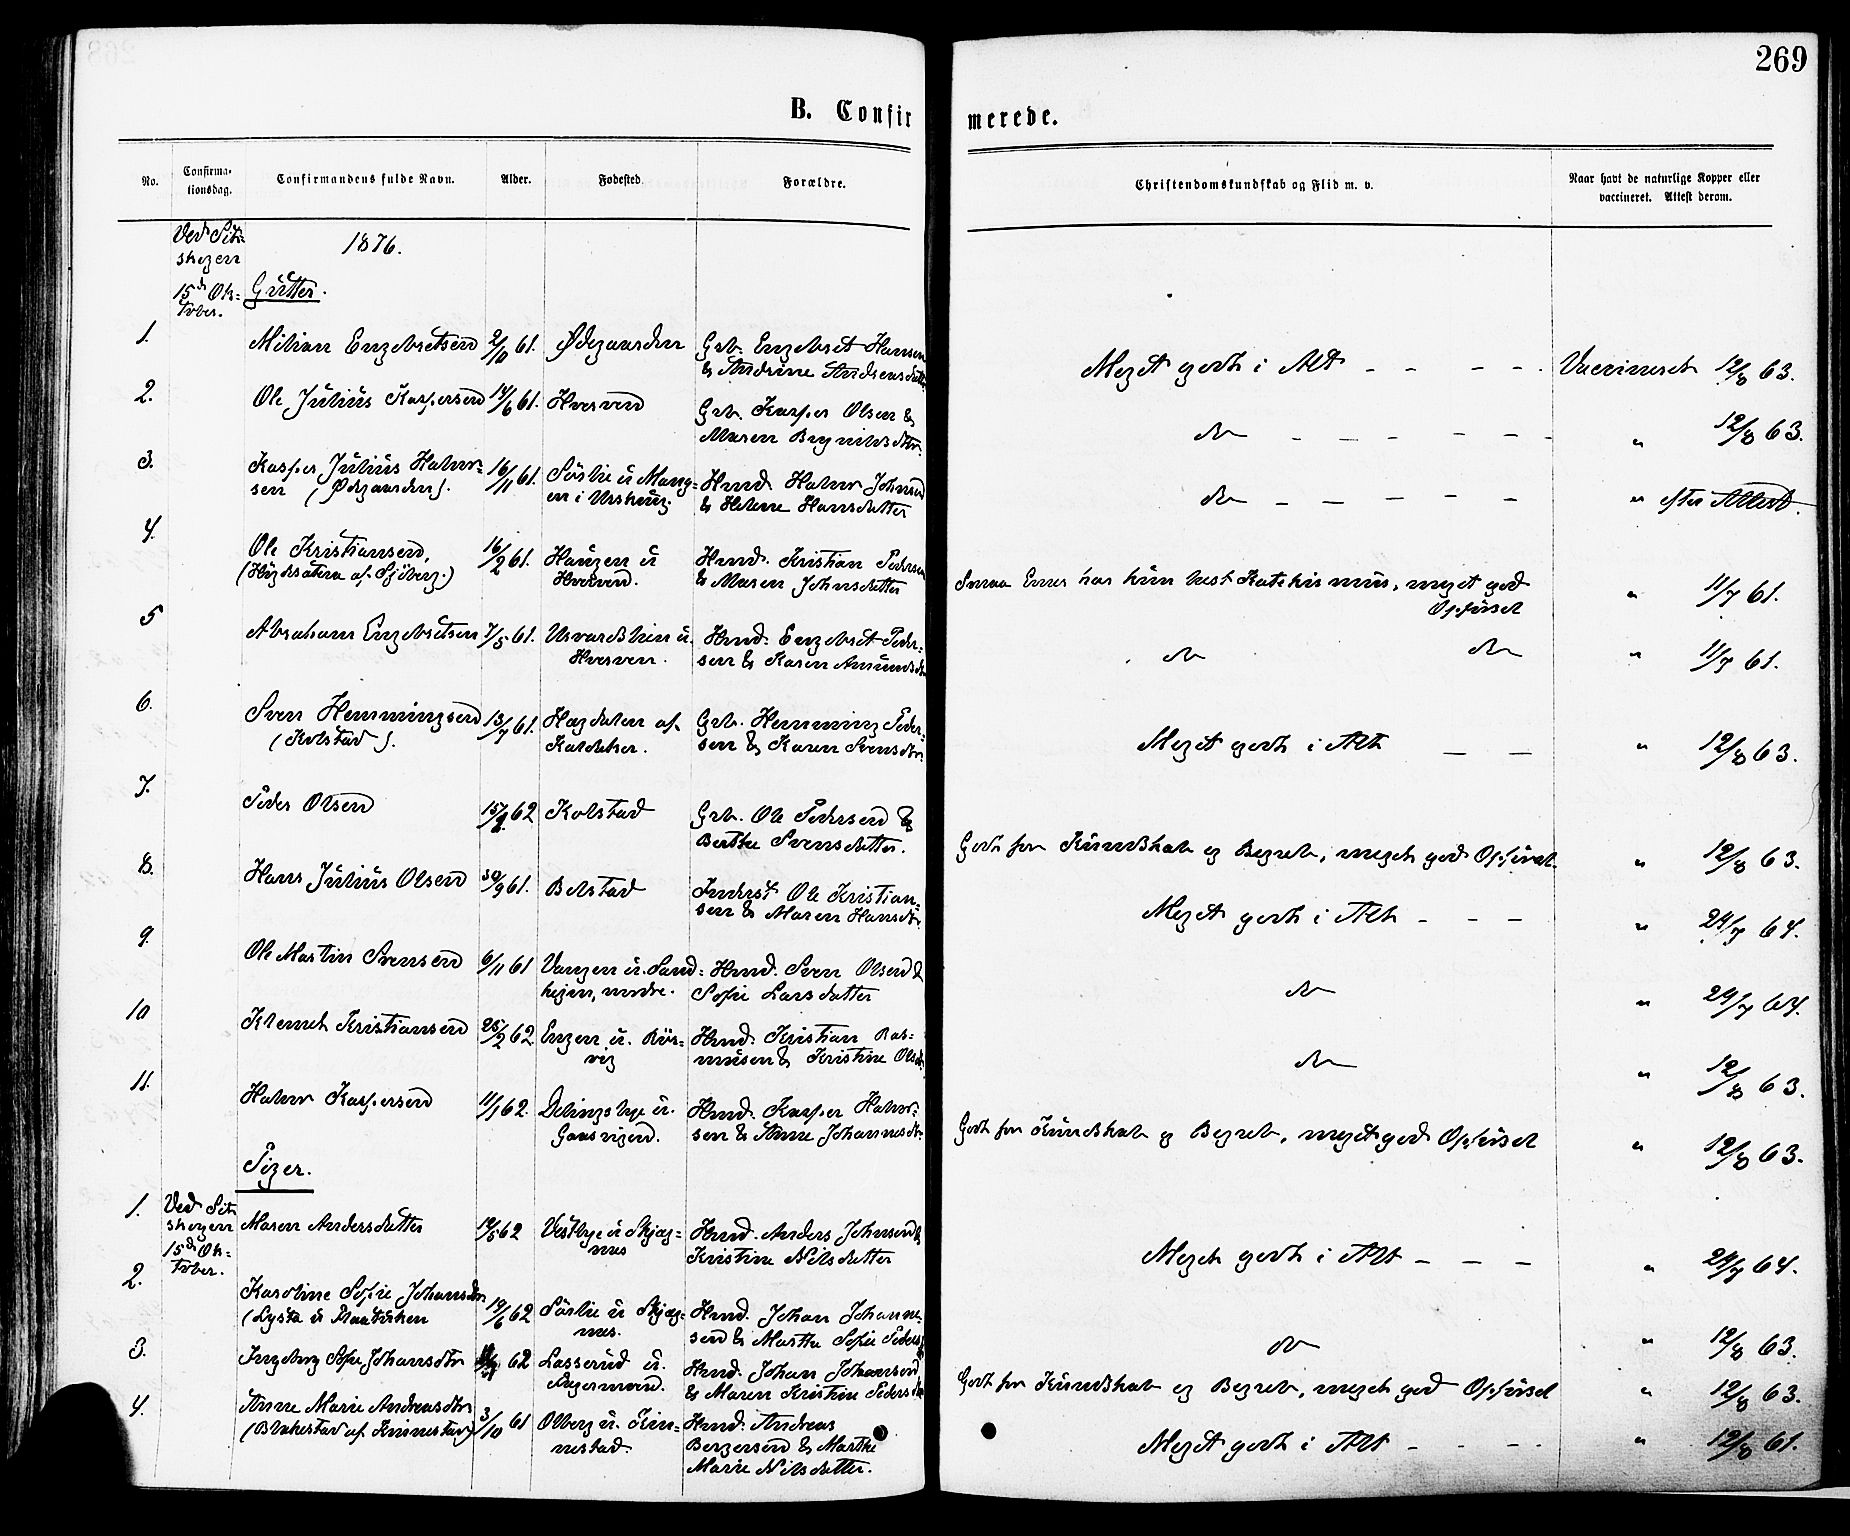 269
B. Confirmerede.
No.
Confirmationsdag.
Confirmandens fulde Navn.
Alder.
Fødested.
Forældre.
Christendomskundskab og Flid m. v.
Naar havt de naturlige Kopper eller vaccineret. Attest derom.
Ved Sits-
skogen
15de Ok-
tober.
1876.
Gutter.
1. Milian Engebretsen 2/10 61. Ødegaarden Grb. Engebret Hansen
& Andrine Andreasdatter
Meget godt i Alt - - - - Vaccineret 12/8 63.
2. Ole Julius Kaspersen 14/6 61. Hverven Grb. Kasper Olsen &
Maren Brynildsdtr.
do - - - - - " 12/8 63.
3. Kasper Julius Halvor-
sen (Ødegaarden). 16/11 61. Sørlie u. Mang-
en i Urskoug. Hmd. Halvor Johnsen
& Helene Hansdatter
do - - - - - " efter Attest.
4. Ole Kristiansen,
(Høgdesætern af Sjøberg.) 16/2 61. Haugen u
Hverven. Hmd. Kristian Pedersen
& Maren Johnsdatter
Smaa Evner har kun læst Katekismus, meget god
Opførsel " 11/7 61.
5 Abraham Engebretsen 7/5 61. u.
Hverven. Hmd. Engebret Peder-
sen & Karen Amundsd.
do do " 11/7 61.
6. Sven Hemmingsen
(Kolstad). 13/7 61. af
Grb. Hemming Peder-
sen & Karen Svensdtr.
Meget godt i Alt - - " 12/8 63.
7. Peder Olsen 15/1 62 Kolstad Grb. Ole Pedersen &
Berthe Svensdatter.
Godt for Kundskab og Begreb, meget god Opførsel " 12/8 63.
8. Hans Julius Olsen 30/9 61. Bolstad Inderst Ole Kristian-
sen & Maren Hansdtr.
Meget godt i Alt - - - " 24/7 64.
9. Ole Martin Svensen 6/11 61 Vangen u. Sand-
nordre. Hmd. Sven Olsen &
Sofie Larsdatter
do " 24/7 64.
10 Klemet Kristiansen 25/2 62 Engen u. Rør-
vig Hmd. Kristian Ras-
musen & Kristine Olsd.
do " 12/8 63.
11. Halvor Kaspersen 11/1 62. u.
Gaasvigen. Hmd. Kasper Halvor-
sen & Anne Johannesdtr.
Godt for Kundskab og Begreb, meget god Opførsel " 12/8 63.
Piger.
1. Ved Sits-
skogen
15de Ok-
tober.
Maren Andersdatter 19/5 62 Vestbye u Skjøg-
nes Hmd. Anders Johnsen &
Kristine Nilsdatter
Meget godt i Alt - - - " 24/7 64.
2. Karoline Sofie Johansdtr
(Lysta u 14/6 62 Sørlie u Skjøg-
nes. Hmd. Johan Johanne-
sen & Marthe Sofie Pedersd
do " 12/8 63.
3. Ingeborg Sofie Johansdtr 62 Lasserud u.
Hmd. Johan Johansen
& Maren Kristine Pedersdtr
Godt for Kundskab og Begreb, meget god Opførsel " 12/8 63.
4. Anne Marie Andreasdtr
(Blakestad af Kinnestad) 3/10 61 Olberg u. Kin-
nestad. Hmd. Andreas
Bergersen & Marthe
Marie Nilsdatter.
Meget godt i Alt - - - - " 12/8 61.